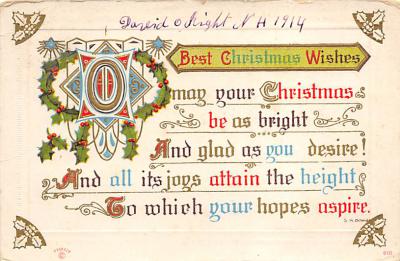 David Night N H 1914
Best Christmas Wishes
O may your Christmas
be as bright
And glad as you desire!
And all its joys attain the height
To which your hopes aspire.